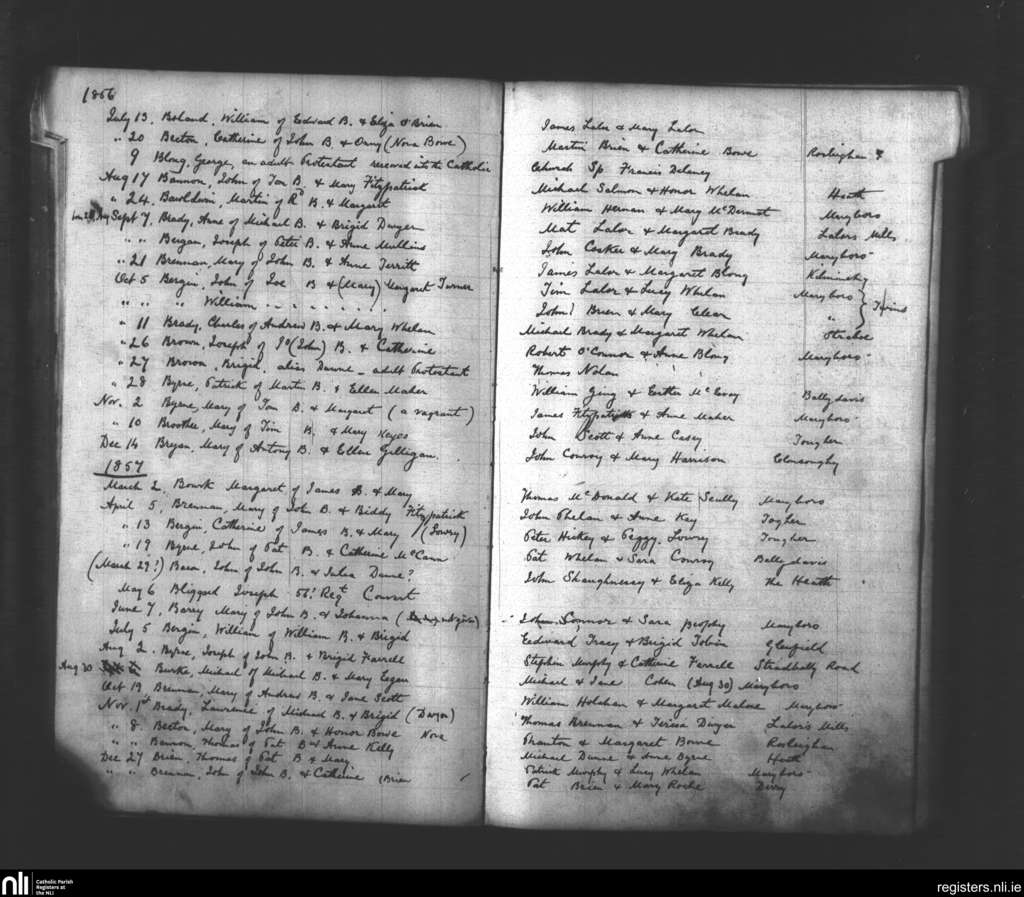 1856
July 13, Boland, William of Edward B. & Eliza O'Brien
" 20 Beeton, Catherine of John B. & Ony (Nora Bowe)
9 Blong, George, an adult Protestant received into the Catholic
Aug 17 Bannon, John of Tom B. & Mary Fitzpatrick
" 24. Bawldwin, Martin of Rd B. & Margaret
Sept 7, Brady, Anne of Michael B. & Brigid Dwyer
" " Bergan, Joseph of Peter B. & Anne Mullins
" 21 Brennan, Mary of John B. & Anne Territt
Oct 5 Bergin, John of Joe B & (Mary) Margaret Turner
" " " William " " " " " "
" 11 Brady, Charles of Andrew B. & Mary Whelan
" 26 Brown, Joseph of Jo (John) B. & Catherine
" 27 Brown, Brigid, alias Dunne - adult Protestant
" 28 Byrne, Patrick of Martin B. & Ellen Maher
Nov. 2 Byrne, Mary of Tom B. & Margaret (a vagrant)
" 10 Broother, Mary of Tim B. & Mary Keyes
Dec 14 Bryan, Mary of Antony B. & Ellen Gilligan.
1857
March 2, Bourk Margaret of James B. & Mary
April 5, Brennan, Mary of John B. & Biddy Fitzpatrick
" 13 Bergin, Catherine of James B. & Mary (Lowry)
" 19 Byrne, John of Pat B. & Catherine McCann
(March 29?) Bacon, John of John B. & Julia Dunne?
May 6 Bliggard Joseph 56! Regt Convert
June 7, Barry Mary of John B. & Johanna
July 5 Bergin, William of William B. & Brigid
Aug 2. Byrne, Joseph of John B. & Brigid Farrell
Aug 30 Burke, Michael of Michael B. & Mary Egan
Oct 19, Brennan, Mary of Andrew B. & Jane Scott
Nov. 1st Brady, Lawrence of Michael B. & Brigid (Dwyer)
" 8 Beeton, Mary of John B. & Honor Bowe Nora
" " Bannon, Thomas of Pat B & Anne Kelly
Dec 27 Brien, Thomas of Pat B & Mary
" " Brennan, John of John B. & Catherine (Brien
James Lalor & Mary Lalor
Martin Brien & Catherine Bowe Rosleighan ?
Church Sp Francis Delaney
Michael Salmon & Honor Whelan Heath
William Hernan & Mary McDermot Maryboro
Mat Lalor & Margaret Brady Lalors Mills
John Conker & Mary Brady Maryboro
James Lalor & Margaret Blong Kilminchy
Tim Lalor & Lucy Whelan Maryboro } Twins
John? Brien & Mary Clear "
Michael Brady & Margaret Whelan Straboe
Robert O'Connor & Anne Blong Maryboro
Thomas Nolan
William Ging & Esther McEvoy Ballydavis
James Fitzpatrick & Anne Maher Maryboro
John Scott & Anne Casey Tougher
John Conroy & Mary Harrison Clonsoughy
Thomas McDonald & Kate Scully Maryboro
John Phelan & Anne Key Togher
Peter Hickey & Peggy Lowry Tougher
Pat Whelan & Sara Conroy Ballydavis
John Shaughnessy & Eliza Kelly The Heath
John Connor & Sara Brophy Maryboro
Eedward Tracy & Brigid Tobin Glenfield
Stephen Murphy & Catherine Farrell Stradbally Road
Michael & Jane Cohen (Aug 30) Maryboro
William Holohan & Margaret Malone Maryboro
Thomas Brennan & Teresa Dwyer Lalor's Mills
Phanton & Margaret Bowe Rosleighan
Michael Dunne & Anne Byrne Heath
Patrick Murphy & Lucy Whelan Maryboro
Pat Brien & Mary Roche Derry
nli Catholic Parish
Registers at
the NLI
registers.nli.ie